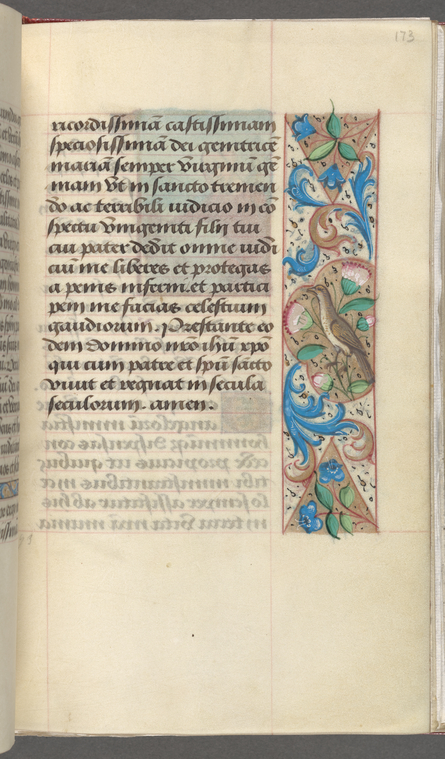 173
ricordissimā castissimam
speciosissimā dei genitricē
mariā semper virginem ge
niam vt in sancto tremen
do ac terribili iudicio in cō
spectu vnigeniti filij tui
cui pater dedit omne iudi
ciū me liberes et protegas
a penis inferni et partici
pem me facias celestium
gaudiorum. Prestante eo
dem domino nr̄o ihū xpō
qui cum patre et spū sācto
viuit et regnat in secula
seculorum. amen.